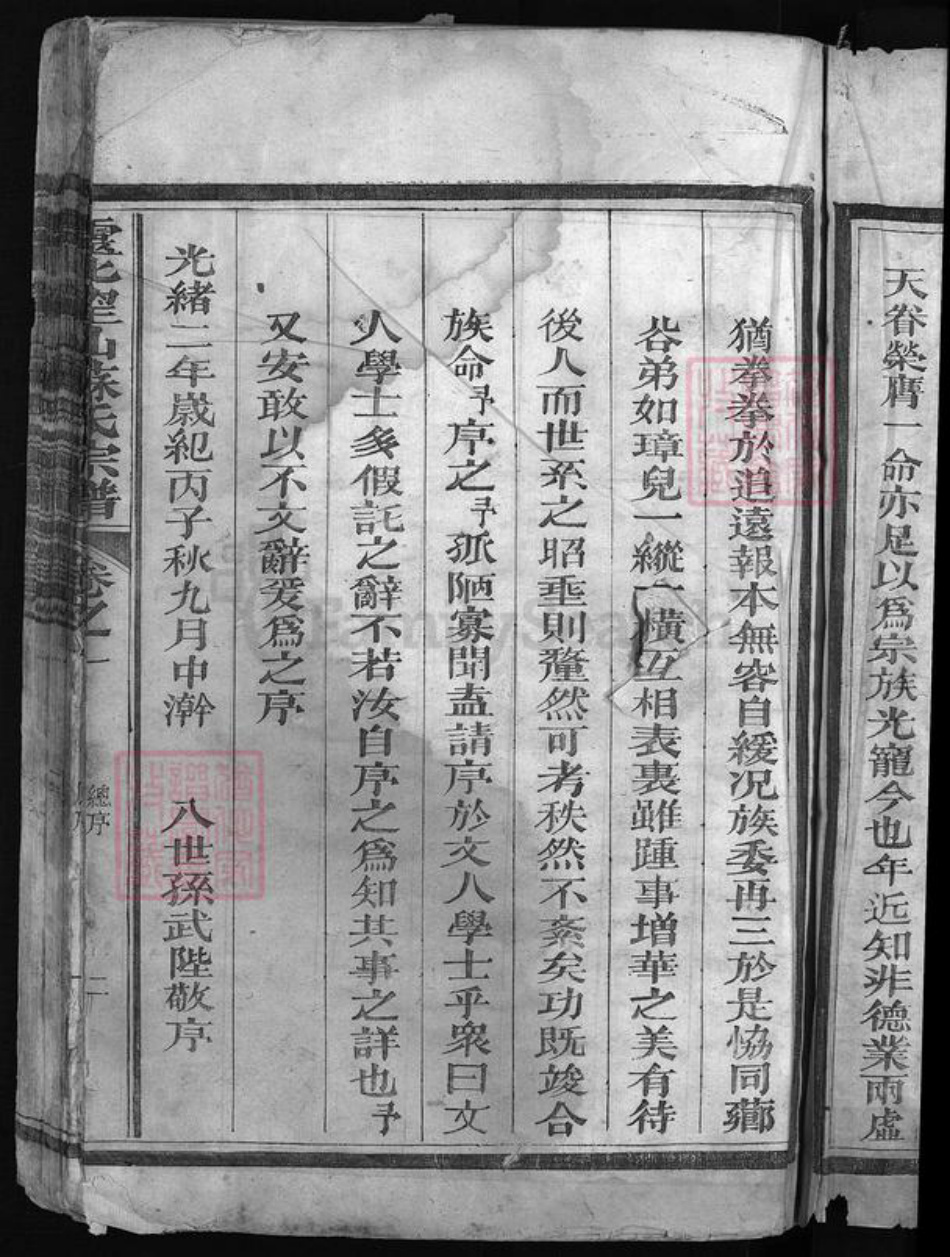 天眷榮膺一命亦足以爲宗族光寵今也年近知非德業兩虛
猶拳拳於追遠報本無容自緩況族委再三於是協同薌
谷弟如璋兒一縱一橫互相表裏雖踵事增華之美有待
後人而世系之昭垂則釐然可考秩然不紊矣功既竣合
族命予序之予孤陋寡聞盍請序於文人學士乎衆曰文
人學士多假託之辭不若汝自序之爲知其事之詳也予
又安敢以不文辭爰爲之序
光緒二年歲紀丙子秋九月中澣 八世孫武陛敬序
山蘇氏宗譜 卷之一 總序 二